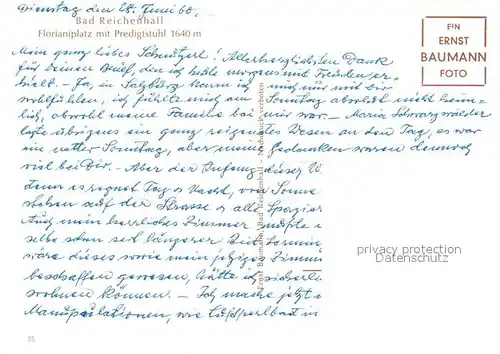 Dienstag den 28. Juni 60.
Bad Reichenhall
Florianiplatz mit Predigtstuhl 1640 m
EIN
ERNST
BAUMANN
FOTO
Mein ganz liebes Schnuzerl! Allerherzlichsten Dank
für deinen Brief, den ich heute morgens mit Freuden er-
hielt. - Ja, in Salzburg kann ich mich nur mit Dir
wohlfühlen, ich fühlte mich am Sonntag absolut nicht heim-
lich, obwohl meine Familie bei mir war. - Maria Schwarzwälder
legte übrigens ein ganz reizendes Wesen an den Tag, es war
ein netter Sonntag, aber meine Gedanken waren dennoch
viel bei Dir. - Aber der Anfang dieser
denn es regnet Tag u. Nacht, von Sonne
stehen auf der Strasse u. alle Spazier
Auch mein herrliches Zimmer mußte
selbe schon seit längerer Zeit
wäre dieses sowie mein jetziges Zimme
beschaffen gewesen, hätte ich sicherli
wohnen können. - Ich mache jetzt
Manipulationen, wie Luftperlbad
Ernst Baumann, Bad Reichenhall - Nachdruck verboten
privacy protection
Oldthing.de
35